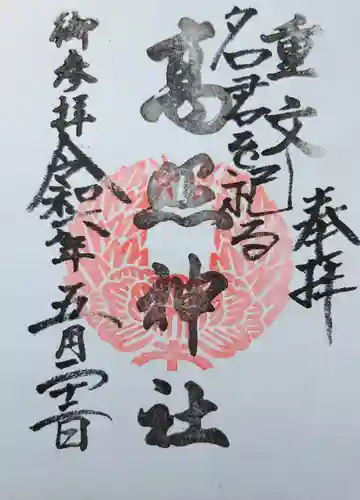 奉拝
重文
名君を祀る
高照神社
御参拝
令和六年五月二十二日